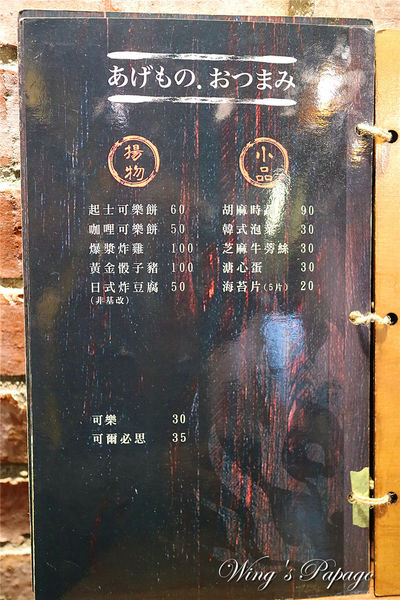 あげもの．おつまみ
揚物
起士可樂餅 60
咖哩可樂餅 50
爆漿炸雞 100
黃金骰子豬 100
日式炸豆腐 50
(非基改)
小品
胡麻時 90
韓式泡菜 30
芝麻牛蒡絲 30
溏心蛋 30
海苔片(5片) 20
可樂 30
可爾必思 35
Wing's Papago